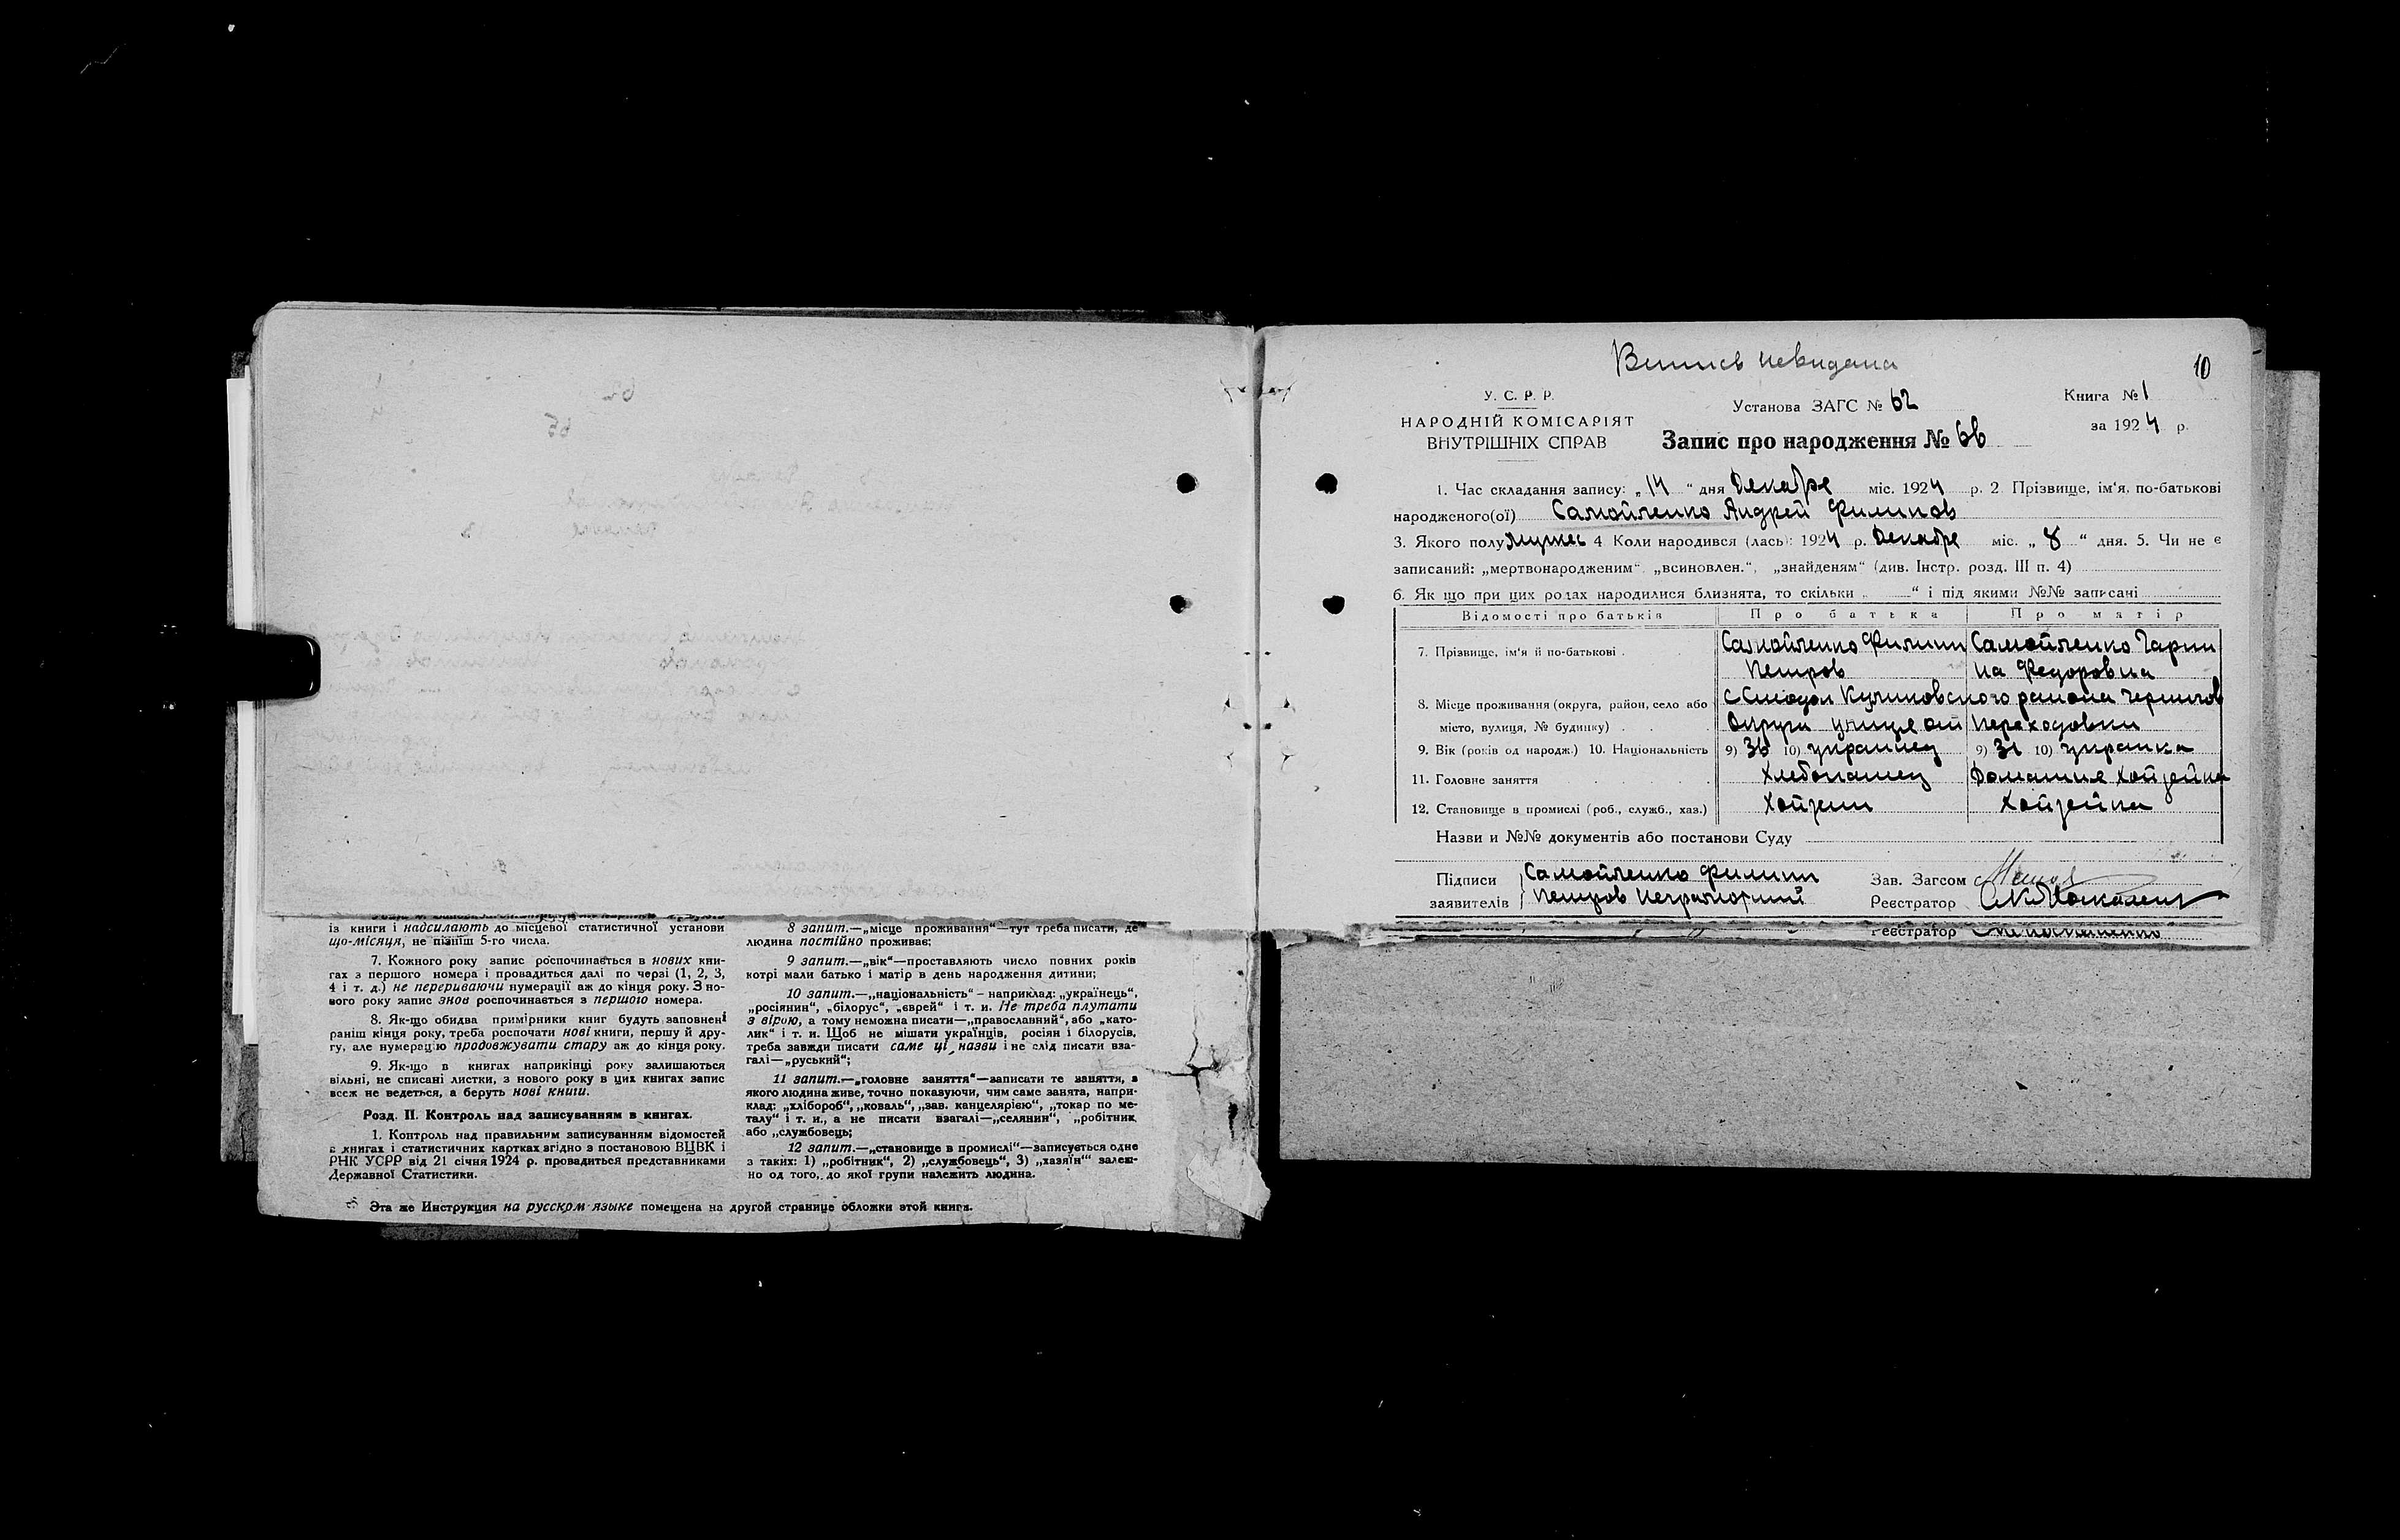 із книги і надсилають до місцевої статистичної установи
що-місяця, не пізніш 5-го числа.
7. Кожного року запис розпочинається в нових кни-
гах з першого номера і провадиться далі по черзі (1, 2, 3,
4 і т. д.) не перериваючи нумерації аж до кінця року. З но-
вого року запис знов розпочинається з першого номера.
8. Як-що обидва примірники книг будуть заповнені
раніш кінця року, треба розпочати нові книги, першу й дру-
гу, але нумерацію продовжувати стару аж до кінця року.
9. Як-що в книгах наприкінці року залишаються
вільні, не списані листки, з нового року в цих книгах запис
всеж не ведеться, а беруть нові книги.
Розд. II. Контроль над записуванням в книгах.
1. Контроль над правильним записуванням відомостей
в книгах і статистичних картках згідно з постановою ВЦВК і
РНК УСРР від 21 січня 1924 р. провадиться представниками
Державної Статистики.
8 запит.—„місце проживання“—тут треба писати, де
людина постійно проживає;
9 запит.—„вік“—проставляють число повних років
котрі мали батько і матір в день народження дитини;
10 запит.—„національність“ – наприклад: „українець“,
„росіянин“, „білорус“, „єврей“ і т. и. Не треба плутати
з вірою, а тому неможна писати—„православний“, або „като-
лик“ і т. и. Щоб не мішати українців, росіян і білорусів,
треба завжди писати саме ці назви і не слід писати вза-
галі—„руський“;
11 запит.—„головне заняття“—записати те заняття, з
якого людина живе, точно показуючи, чим саме занята, напри-
клад: „хлібороб“, „коваль“, „зав. канцелярією“, „токар по ме-
талу“ і т. и., а не писати взагалі—„селянин“, „робітник
або „службовець;
12 запит.—„становище в промислі“—записується одне
з таких: 1) „робітник“, 2) „службовець“, 3) „хазяїн“ залеж-
но од того, до якої групи належить людина.
Эта же Инструкция на русском языке помещена на другой странице обложки этой книги.
Випись невидана
10
У. С. Р. Р.
НАРОДНІЙ КОМІСАРІЯТ
ВНУТРІШНІХ СПРАВ
Установа ЗАГС № 62
Запис про народження № 66
Книга № 1
за 1924 р.
1. Час складання запису: „14“ дня Декабре міс. 1924 р. 2 Прізвище, ім‘я, по-батькові
народженого(ої) Самойленко Андрей Филипов
3. Якого полу Мужес 4 Коли народився (лась): 1924 р. Декабре міс. „8“ дня. 5. Чи не є
записаний: „мертвонародженим“ „всиновлен.“, „знайденям“ (див. Інстр. розд. III п. 4)
6. Як що при цих родах народилися близнята, то скільки „ “ і під якими №№ записані
Відомості про батьків Про батька Про матір
7. Прізвище, ім‘я й по-батькові Самойленко Филипп Самойленко Гарпи
Петров на Федоровна
8. Місце проживання (округа, район, село або с Куликовского района Чернигов
місто, вулиця, № будинку) Округи
9. Вік (років од народж.) 10. Національність 9) 36 10) украинец 9) 31 10) украинка
11. Головне заняття Хлебопашец Домашняя хойзейка
12. Становище в промислі (роб., служб., хаз.) Хойзеин Хойзейка
Назви и №№ документів або постанови Суду
Підписи Самойленко Филипп Зав. Загсом
заявителів Петров Неграмотний Реєстратор
Реєстратор